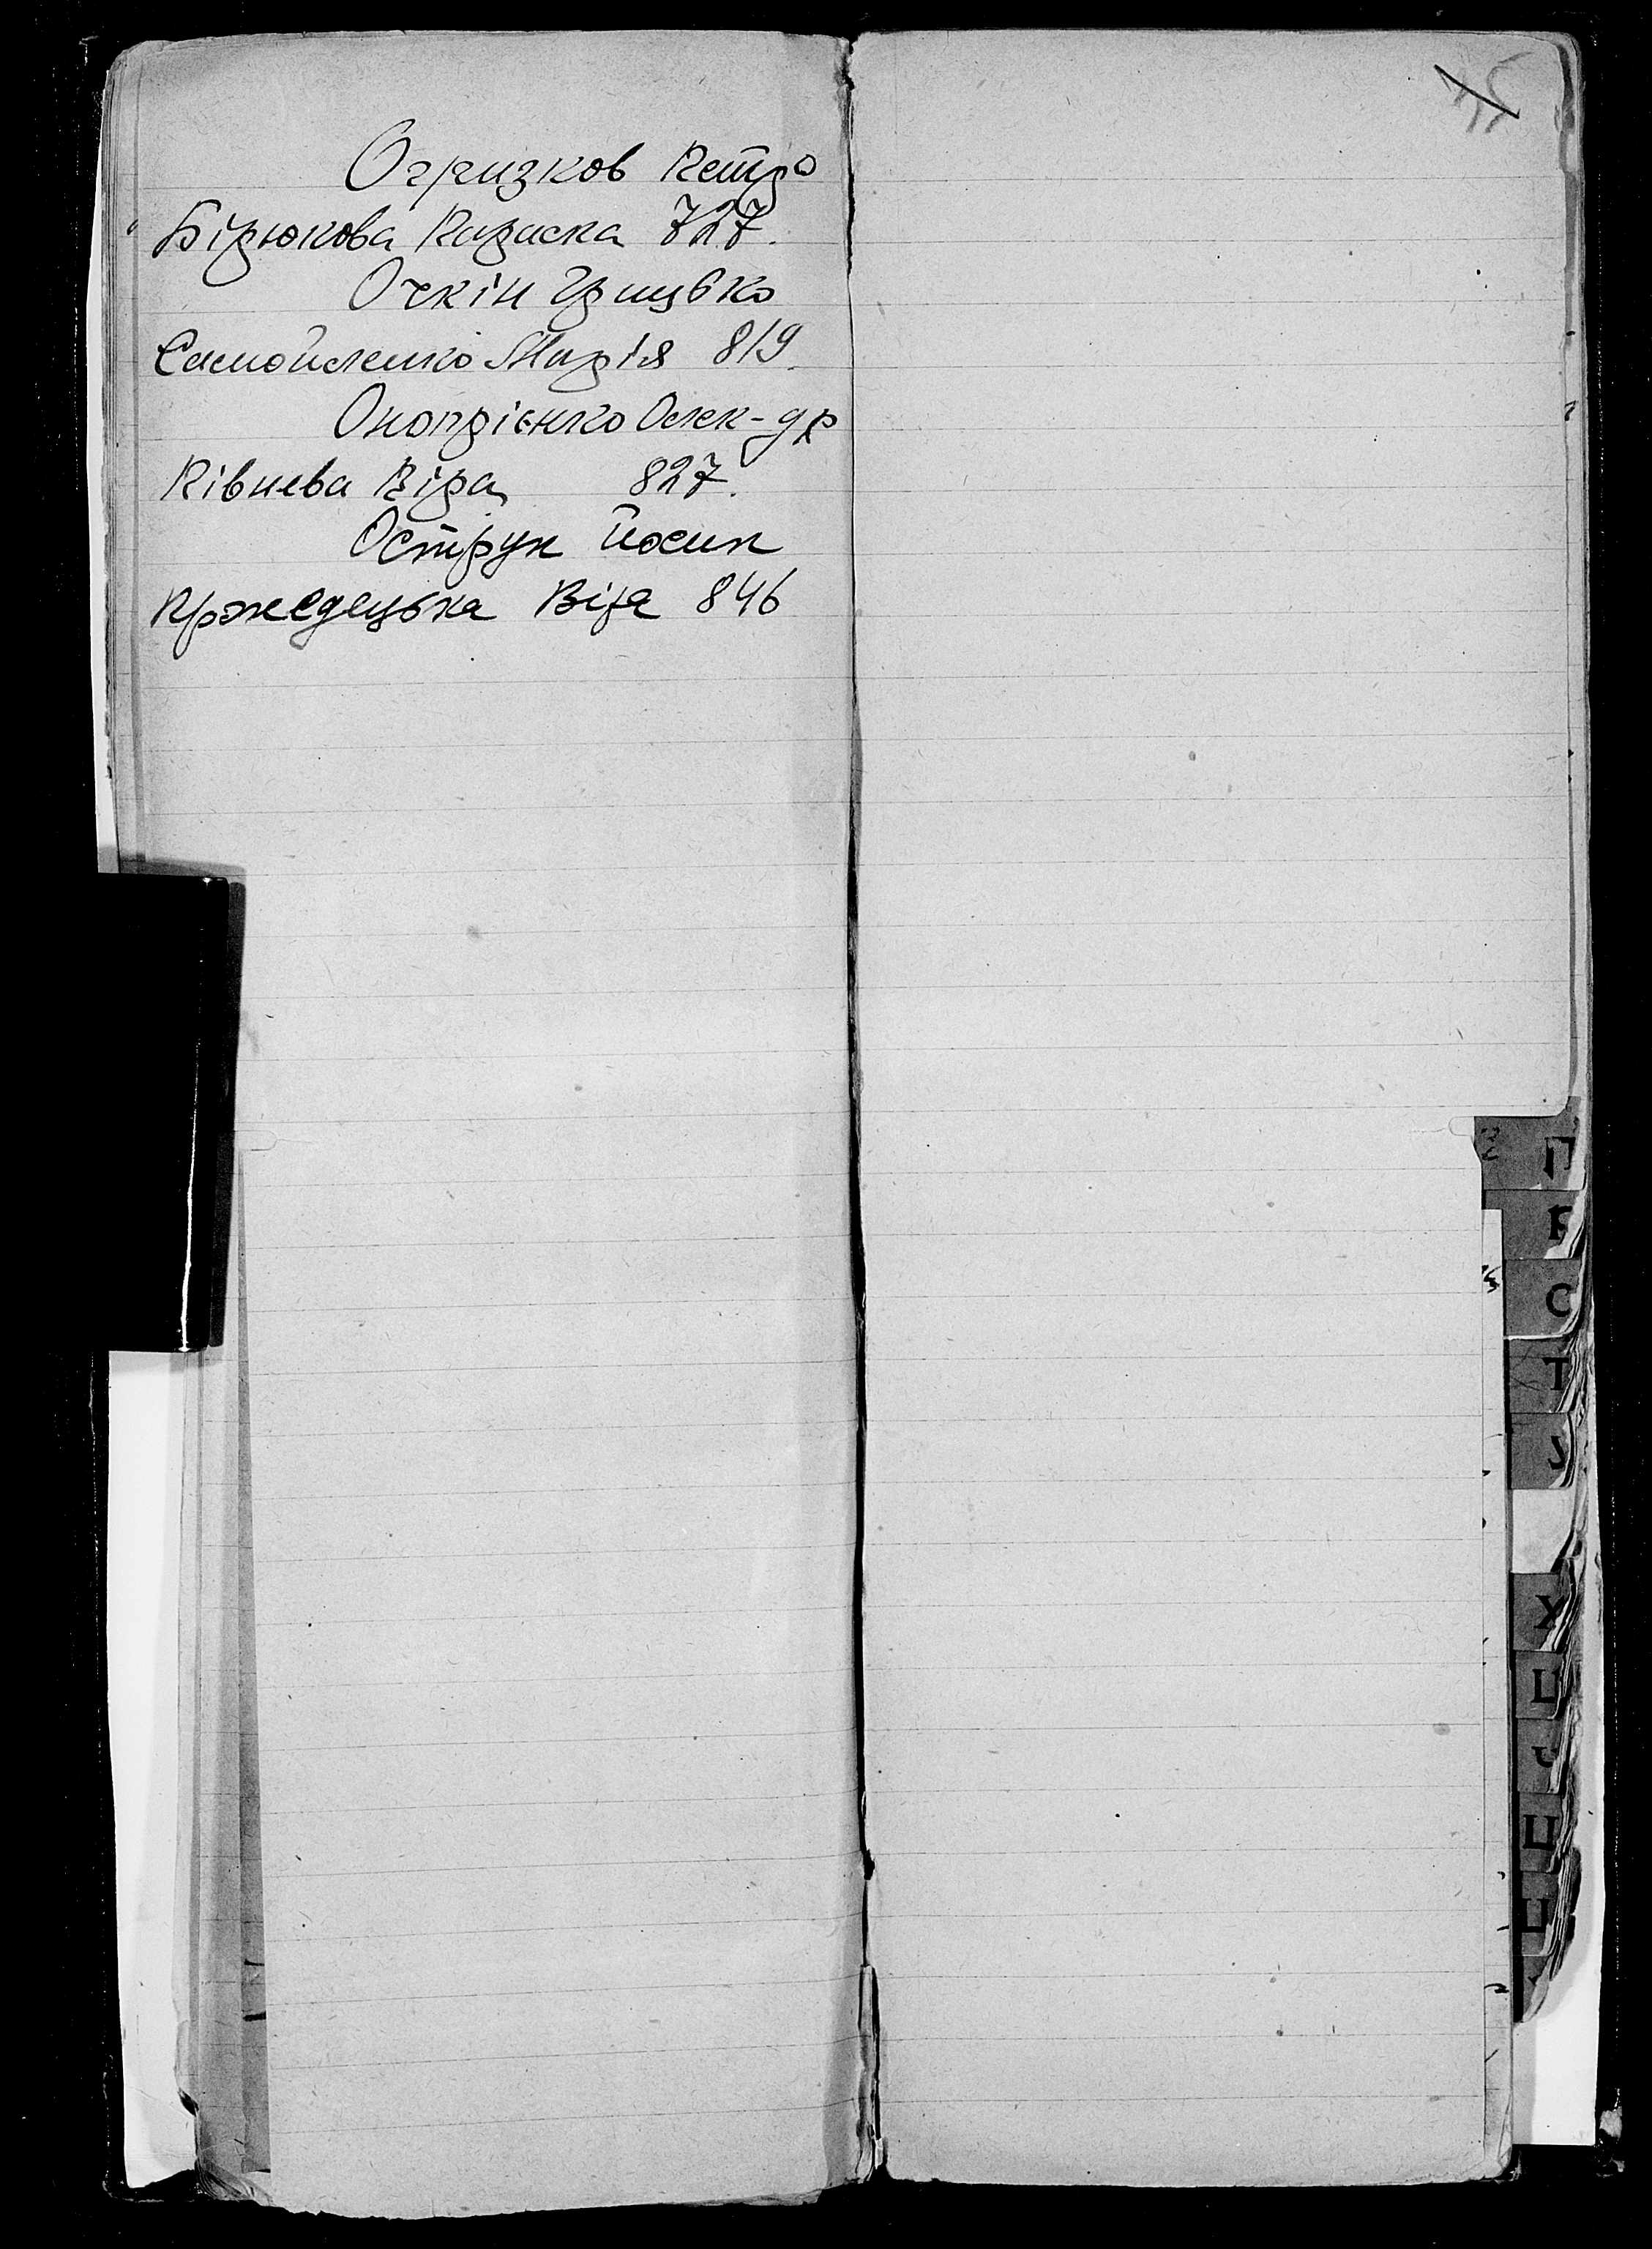 Огризков Петро
Бірюкова Параска 727.
Очкін Грицько
Самойленко Марія 819.
Онопрієнко Олек-др
Півнева Віра 827.
Острун Йосип
Пржедецька Віра 846
П
Р
С
Т
Х
Ц